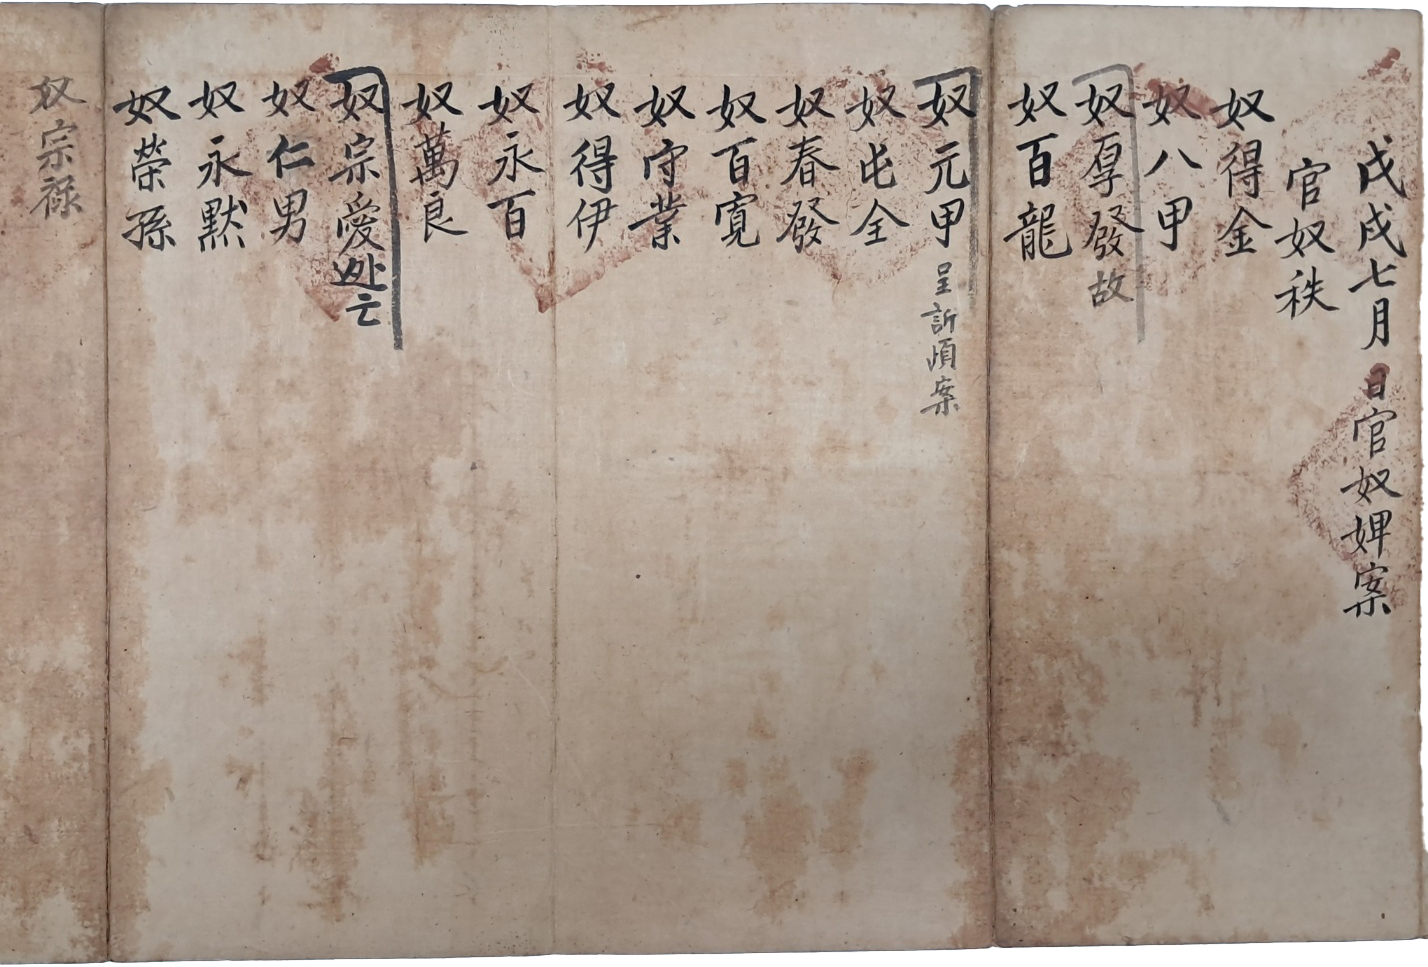 戊戌七月 日官奴婢案
官奴秩
奴得金
奴八甲
奴厚發故
奴百龍
奴元甲呈訴頉案
奴屯全
奴春發
奴百寬
奴守業
奴得伊
奴永百
奴萬良
奴宗愛迯亡
奴仁男
奴永默
奴榮孫
奴宗祿